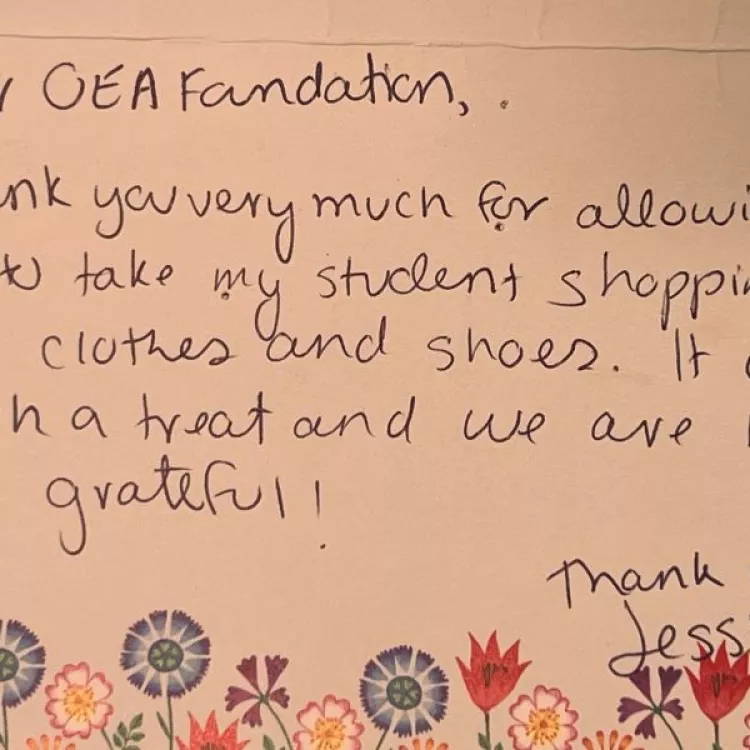 OEA Foundation,
nk you very much for allowi
to take my student shoppin
clothes and shoes. It
h a treat and we are
grateful!
Thank
Jess